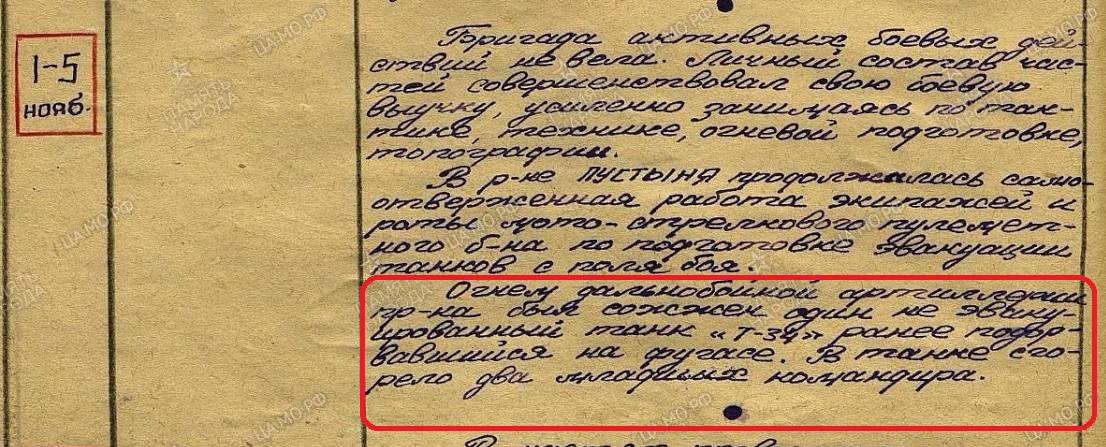 1-5
нояб.
Бригада активных боевых дей-
ствий не вела. Личный состав час-
тей совершенствовал свою боевую
выучку, усиленно занимаясь по так-
тике, технике, огневой подготовке,
топографии.
В р-не ПУСТЫНЯ продолжалась само-
отверженная работа экипажей и
роты мото-стрелкового пулемет-
ного б-на по подготовке эвакуации
танков с поля боя.
Огнем дальнобойной артиллерии
пр-ка был сожжен один не эваку-
ированный танк «Т-34» ранее подор-
вавшийся на фугасе. В танке сго-
рело два младших командира.
ЦАМО.РФ
ПАМЯТЬ
НАРОДА